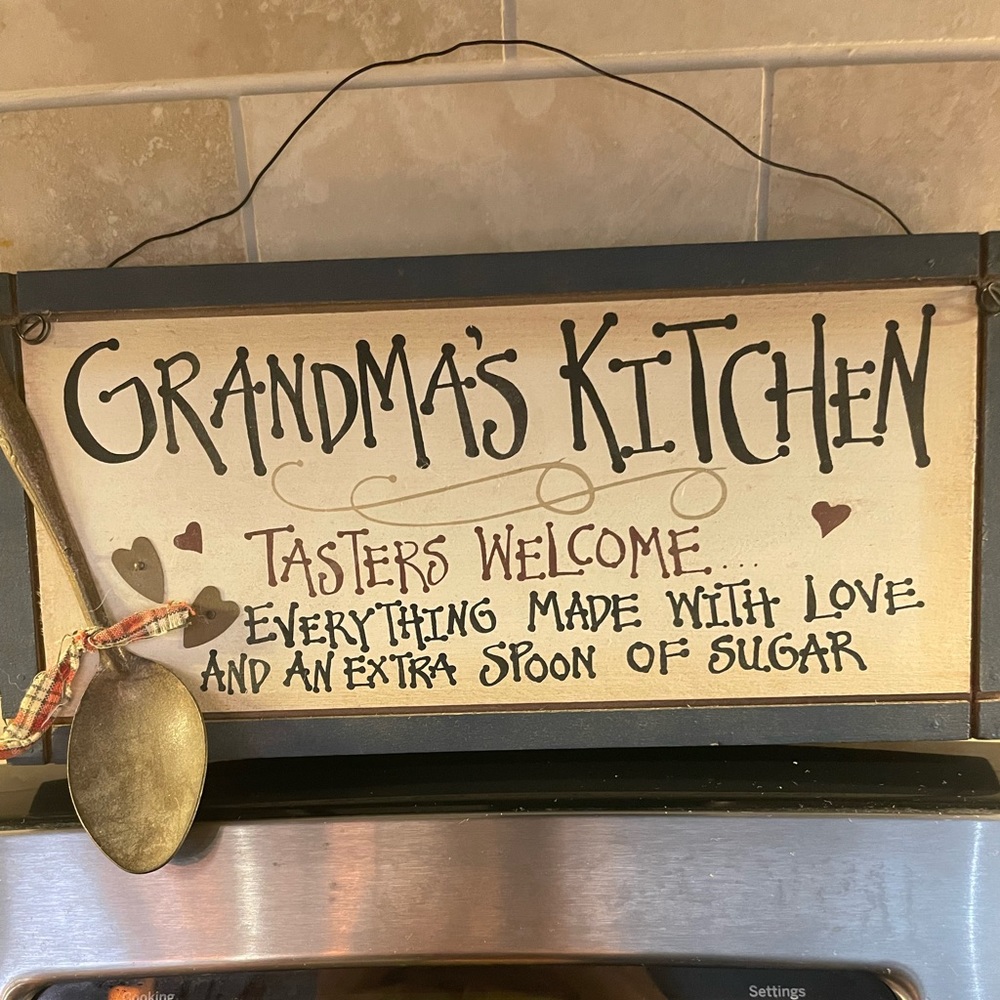 GRANDMA'S KITCHEN
TASTERS WELCOME...
EVERYTHING MADE WITH LOVE
AND AN EXTRA SPOON OF SUGAR
Cooking Settings